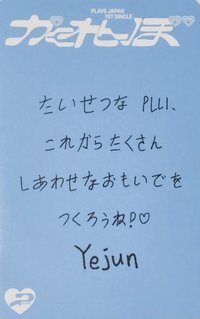 PLAVE JAPAN
1ST SINGLE
かくれんぼ
たいせつな PLLI、
これからたくさん
しあわせなおもいでを
つくろうね!♡
Yejun